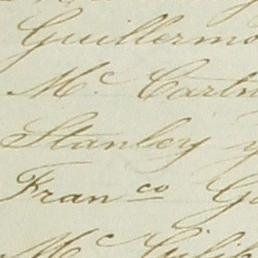 Guillermo
Mc Cartn
Stanley y
Franco G
Mc